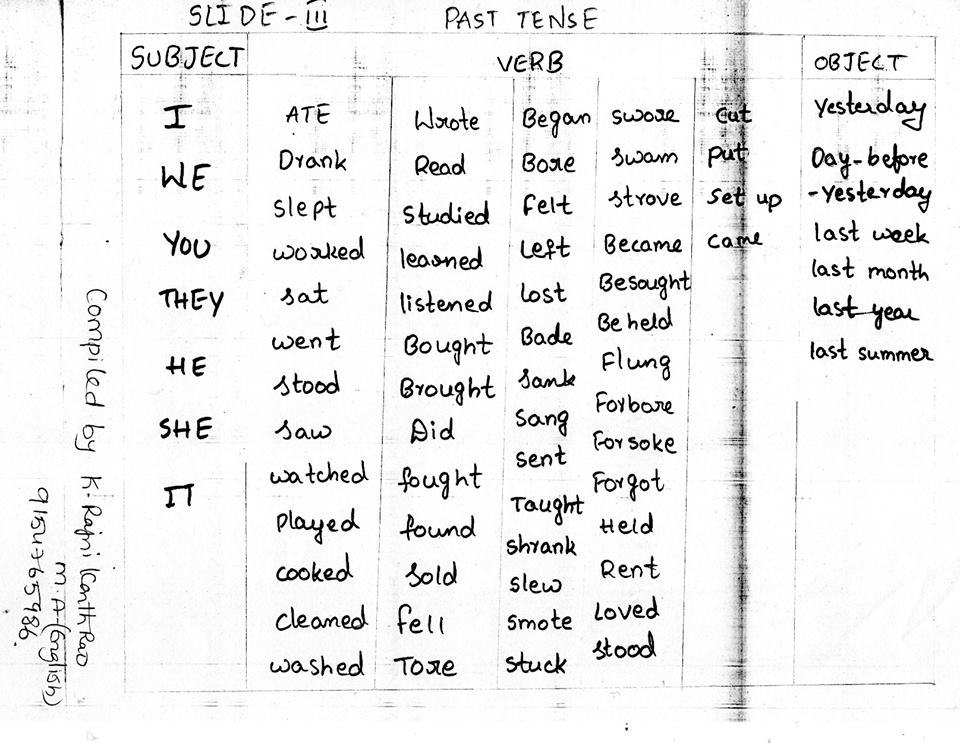 SLIDE-III PAST TENSE
SUBJECT VERB OBJECT
I
WE
YOU
THEY
HE
SHE
IT
ATE
Drank
slept
worked
sat
went
stood
saw
watched
played
cooked
cleaned
washed
Wrote
Read
studied
learned
listened
Bought
Brought
Did
fought
found
sold
fell
Tore
Began
Bore
felt
left
lost
Bade
sank
sang
sent
Taught
shrank
slew
smote
stuck
swore
swam
strove
Became
Besought
Beheld
Flung
Forbore
Forsoke
Forgot
Held
Rent
Loved
stood
cut
put
set up
came
Yesterday
Day-before
-yesterday
last week
last month
last year
last summer
Compiled by K. Rajni Kanth Rao
M.A (English)
9154765986